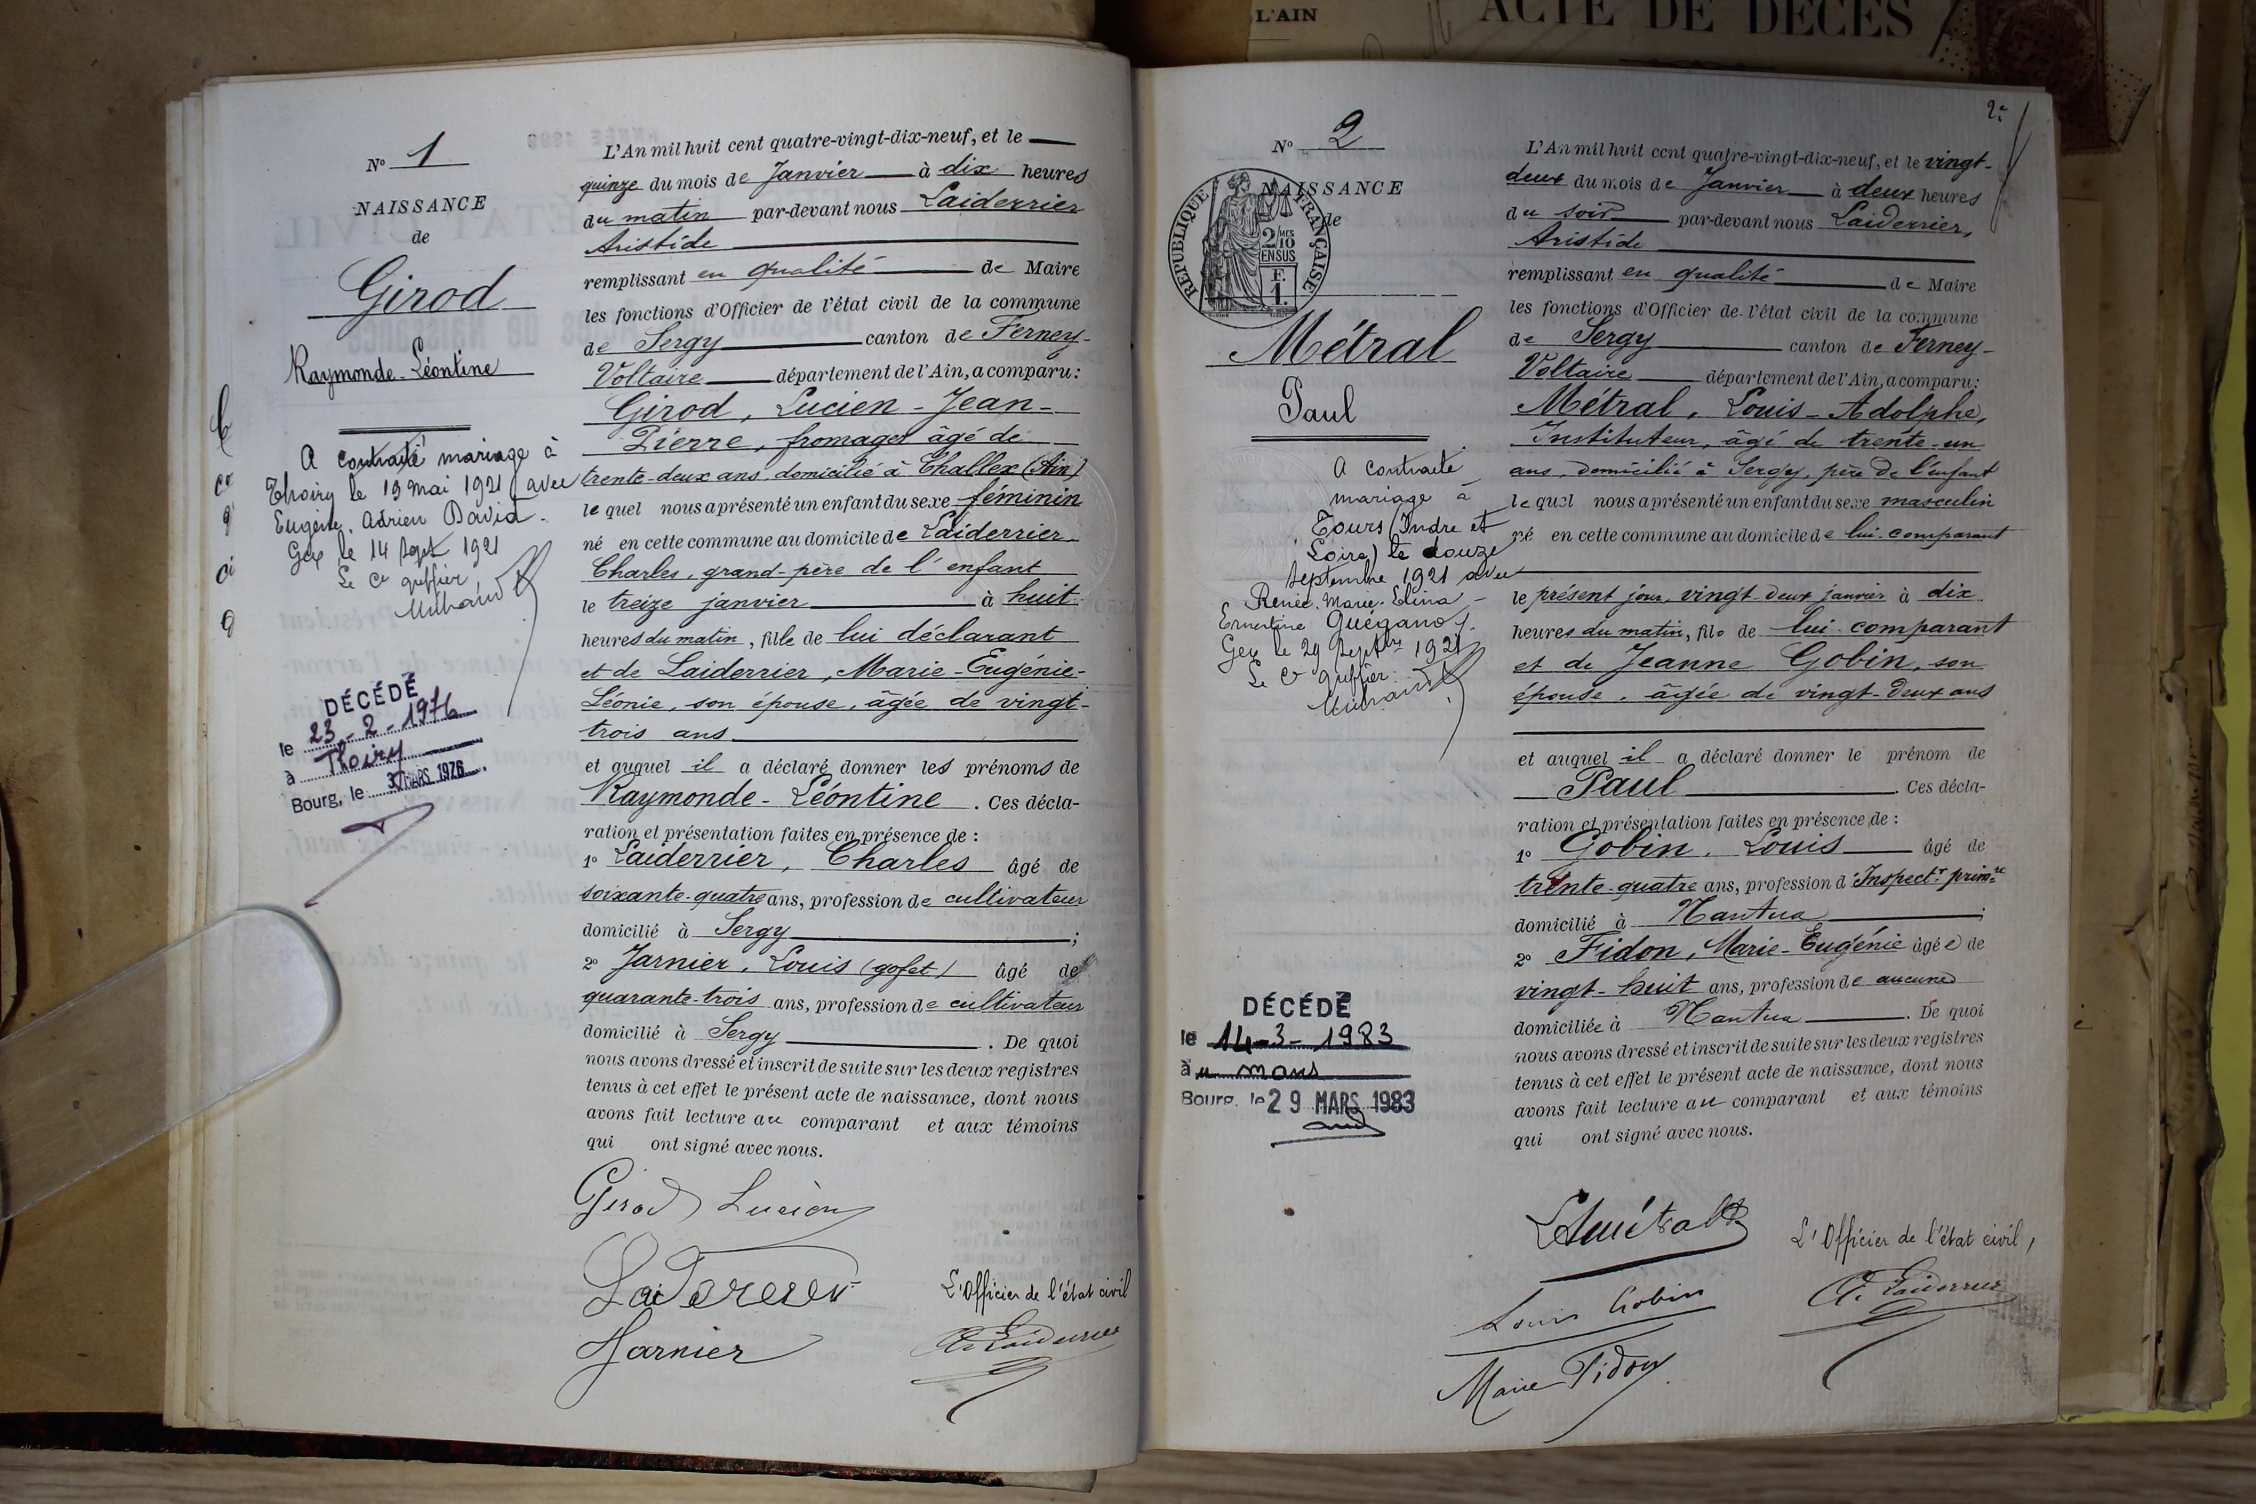 L'AIN
ACTE DE DÉCÈS
Nº 1
NAISSANCE
de
Girod
Raymonde-Léontine
A contracté mariage à
Thoiry le 19 Mai 1921 avec
Eugène, Adrien David.
Gex le 14 Sept 1921
Le Cis greffier,
DÉCÉDÉ
le 23-2-1976
à Thoiry
Bourg, le MARS 1976
L'An mil huit cent quatre-vingt-dix-neuf, et le
quinze du mois de Janvier à dix heures
du matin par-devant nous Laiderrier
Aristide
remplissant en qualité de Maire
les fonctions d'Officier de l'état civil de la commune
de Sergy canton de Ferney-
Voltaire département de l'Ain, a comparu:
Girod, Lucien-Jean-
Pierre, fromager âgé de
trente-deux ans, domicilié à Challex (Ain)
lequel nous a présenté un enfant du sexe féminin
né en cette commune au domicile de Laiderrier
Charles, grand-père de l'enfant
le treize janvier à huit
heures du matin, fille de lui déclarant
et de Laiderrier, Marie-Eugénie-
Léonie, son épouse, âgée de vingt-
trois ans
et auquel il a déclaré donner les prénoms de
Raymonde-Léontine. Ces décla-
ration et présentation faites en présence de:
1º Laiderrier, Charles âgé de
soixante-quatre ans, profession de cultivateur
domicilié à Sergy;
2º Jarnier, Louis (gofet) âgé de
quarante-trois ans, profession de cultivateur
domicilié à Sergy. De quoi
nous avons dressé et inscrit de suite sur les deux registres
tenus à cet effet le présent acte de naissance, dont nous
avons fait lecture au comparant et aux témoins
qui ont signé avec nous.
Girod Lucien
Laiderrier
Jarnier
L'Officier de l'état civil
A. Laiderrier
2e
Nº 2
NAISSANCE
de
RÉPUBLIQUE FRANÇAISE
2/10 MES
EN SUS
F.
1.
Métral
Paul
A contracté
mariage à
Tours (Indre et
Loire) le douze
septembre 1921 avec
Renée, Marie-Elina-
Ernestine Guégano
Gex le 29 Septbre 1921
Le Cis greffier
DÉCÉDÉ
le 14-3-1983
au mans
Bourg, le 29 MARS 1983
L'An mil huit cent quatre-vingt-dix-neuf, et le vingt-
deux du mois de Janvier à deux heures
du soir par-devant nous Laiderrier,
Aristide
remplissant en qualité de Maire
les fonctions d'Officier de l'état civil de la commune
de Sergy canton de Ferney-
Voltaire département de l'Ain, a comparu:
Métral, Louis-Adolphe,
Instituteur, âgé de trente-un
ans, domicilié à Sergy, père de l'enfant
lequel nous a présenté un enfant du sexe masculin
né en cette commune au domicile de lui comparant
le présent jour, vingt-deux janvier à dix
heures du matin, fils de lui comparant
et de Jeanne Gobin, son
épouse, âgée de vingt-deux ans
et auquel il a déclaré donner le prénom de
Paul. Ces décla-
ration et présentation faites en présence de:
1º Gobin, Louis âgé de
trente-quatre ans, profession d'Inspectr primre
domicilié à Nantua;
2º Fidon, Marie-Eugénie âgée de
vingt-huit ans, profession de aucune
domiciliée à Nantua. De quoi
nous avons dressé et inscrit de suite sur les deux registres
tenus à cet effet le présent acte de naissance, dont nous
avons fait lecture au comparant et aux témoins
qui ont signé avec nous.
LAMétral
Louis Gobin
Marie Fidon
L'Officier de l'état civil,
A. Laiderrier